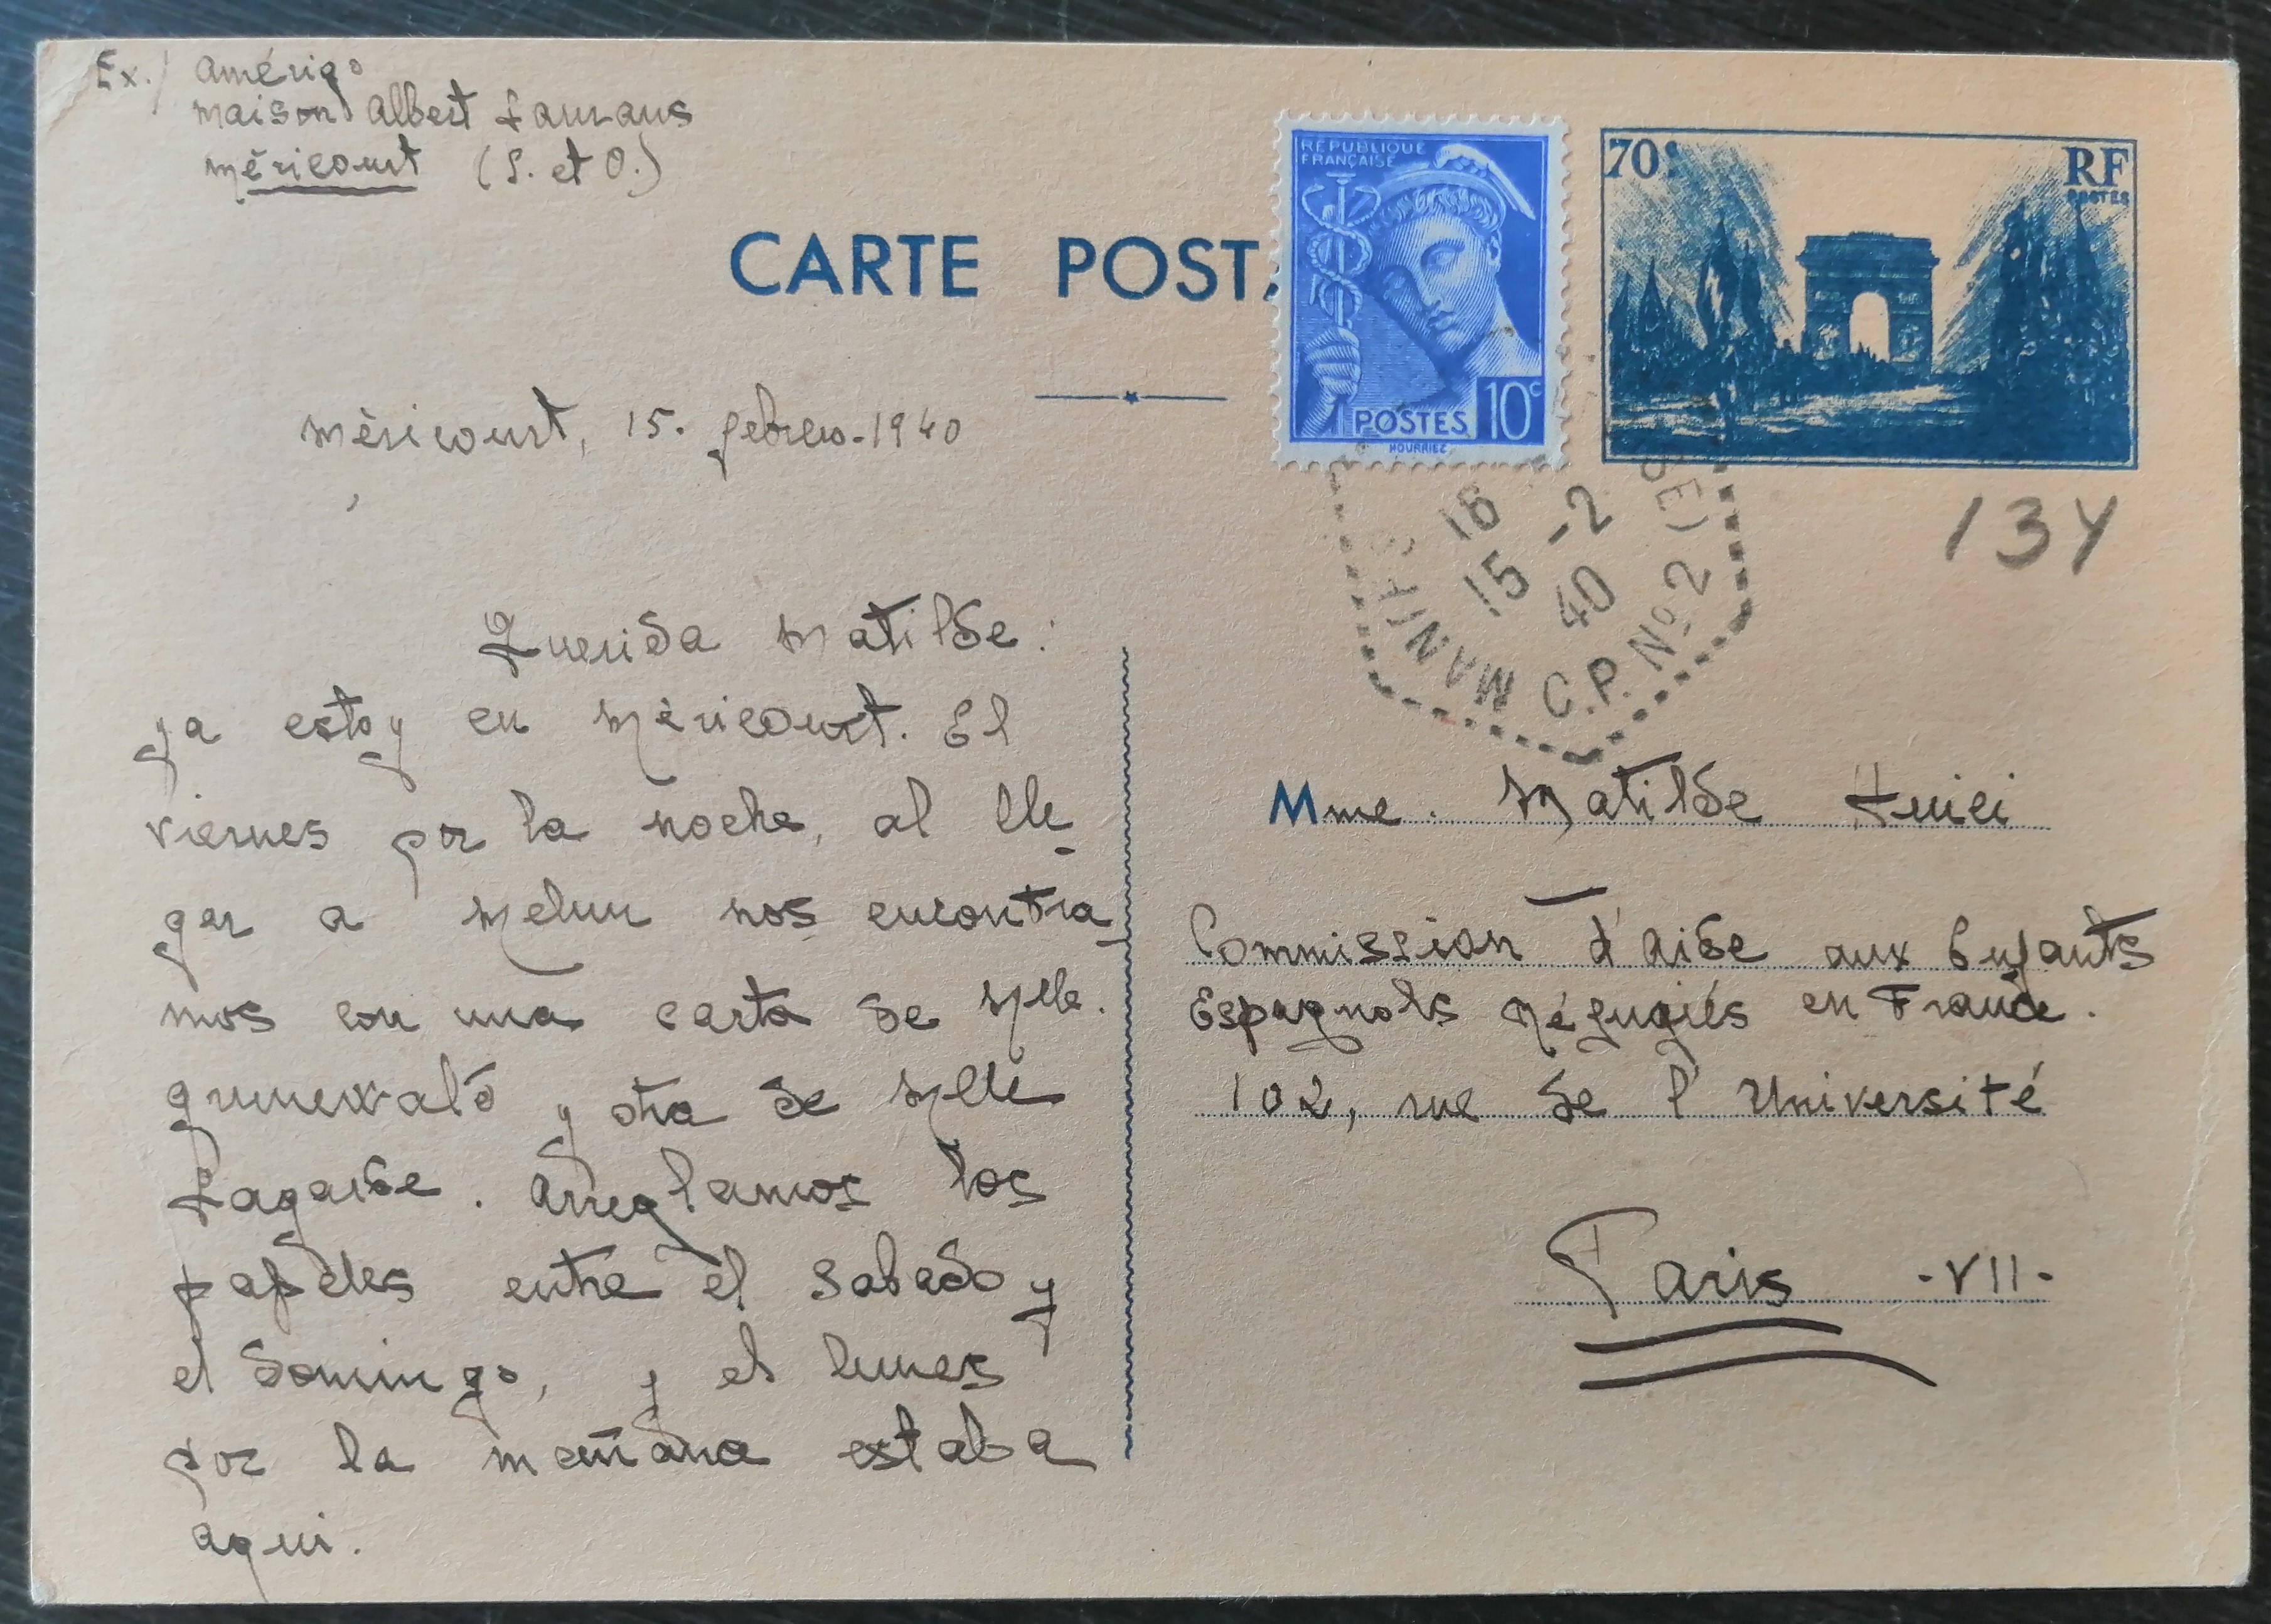 Ex./ Amérigo
maison Albert Laurans
Méricourt (S. et O.)
RÉPUBLIQUE
FRANÇAISE
POSTES 10c
HOURRIEZ
70c RF
POSTES
CARTE POST
Méricourt, 15. febrero-1940
134
18
15 -2
40
MANTES C.P. Nº 2 (SE
Querida Matilde:
ya estoy en Méricourt. El
viernes por la noche, al lle
gar a Melun nos encontra
mos con una carta de Mlle.
y otra de Melle
Lagarde. Arreglamos los
papeles entre el sabado y
el domingo, y el lunes
por la mañana estaba
aqui.
Mme. Matilde Huici
Commission d'aide aux Enfants
Espagnols réfugiés en France.
102, rue de l'Université
Paris -VII-